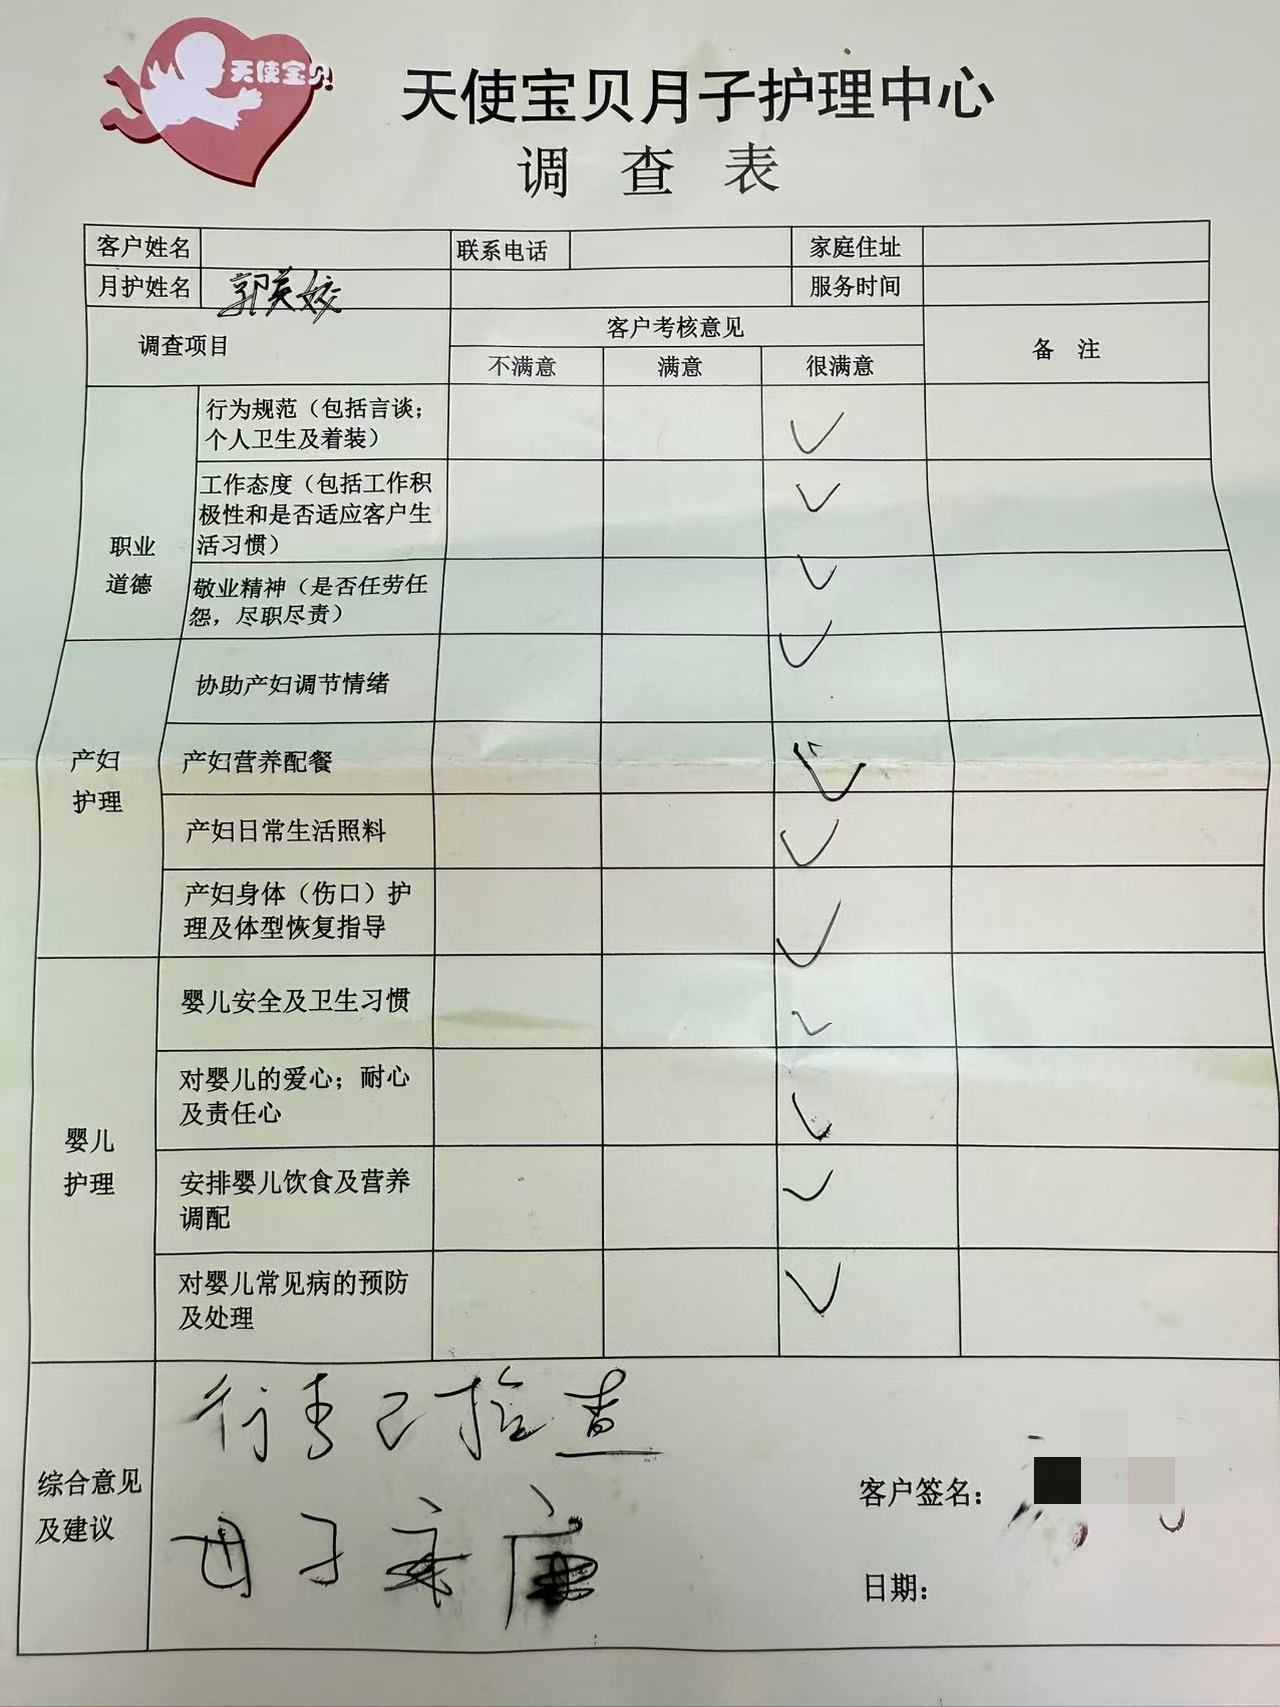 天使宝贝
天使宝贝月子护理中心
调 查 表
客户姓名 联系电话 家庭住址
月护姓名 郭英姣 服务时间
调查项目 客户考核意见 备 注
不满意 满意 很满意
职业
道德
行为规范（包括言谈；
个人卫生及着装）
工作态度（包括工作积
极性和是否适应客户生
活习惯）
敬业精神（是否任劳任
怨，尽职尽责）
产妇
护理
协助产妇调节情绪
产妇营养配餐
产妇日常生活照料
产妇身体（伤口）护
理及体型恢复指导
婴儿
护理
婴儿安全及卫生习惯
对婴儿的爱心；耐心
及责任心
安排婴儿饮食及营养
调配
对婴儿常见病的预防
及处理
综合意见
及建议
行李已检查
母子平康
客户签名：
日期：